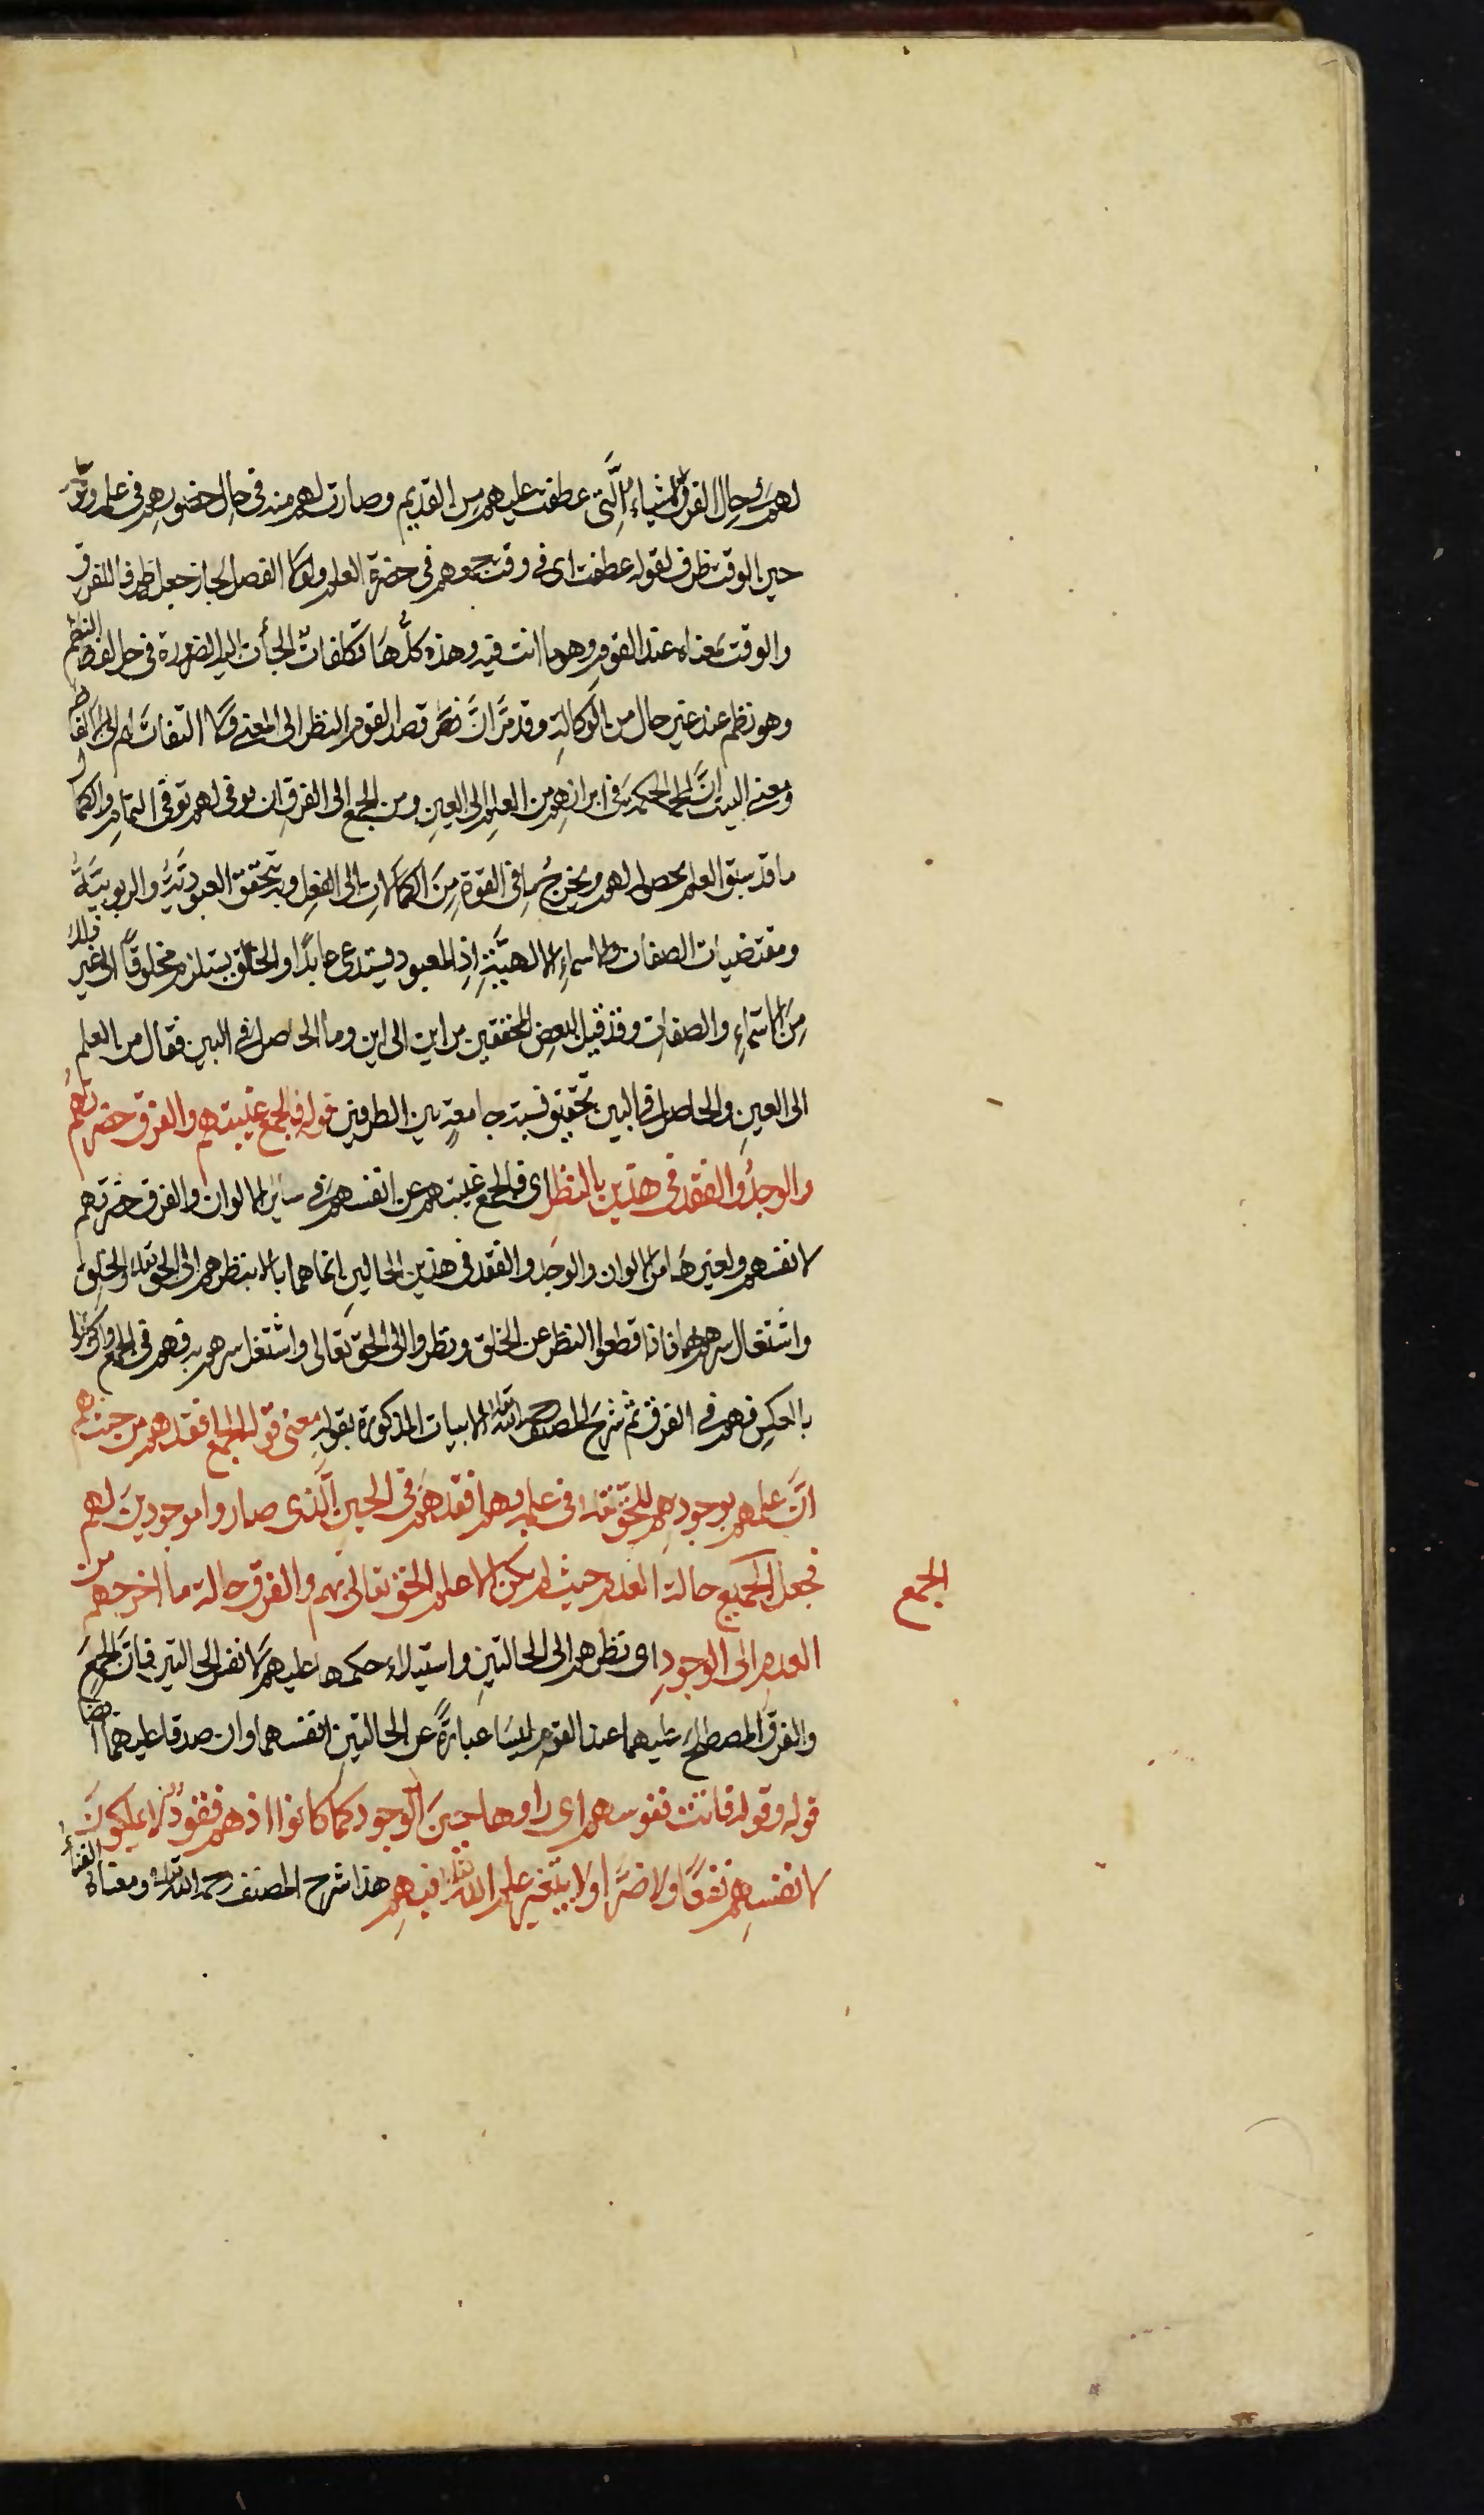 لهم في حال الفرق الاشياء التي عطفت عليهم من القديم وصارت لهم منه في حال حضورهم في علم
حين الوقت ظرف لقوله عطفت اى في وقت جمعهم في حضرة العلم ولولا الفصل لجاز جعله ظرفا للفرق
والوقت بمعناه عند القوم وهو ما انت فيه وهذه كلُّها تكلفاتٌ الجأت اليه الضرورة في حل لفظ النظم
وهو نظم عند غير حال من الوكالة وقد مرَّ انَّ قصد القوم النظر الى المعنى ولا التفات لهم الى الالفاظ
ومعنى البيت انَّ الحكمة في ابرازهم من العلم الى العين ومن الجمع الى الفرق ان
ما قد سبق العلم بحصوله لهم ويخرج ما في القوة من الكمالات الى الفعل وبه تتحقق العبوديَّة والربوبيَّة
ومقتضيات الصفات والاسماء الالهيَّة اذ المعبود يستدعى عابدًا والخالق يستلزم مخلوقًا الى غير ذلك
من الاسماء والصفات وقد قيل لبعض المحققين من اين الى اين وما الحاصل في البين فقال من العلم
الى العين والحاصل في البين تحقيق نسبة جامعةٍ بين الطرفين قوله فالجمع غيبتهم والفرق حضرتهم
والوجدُ والفقد في هذين بالنظر اى فالجمع غيبتهم عن انفسهم في ساير الالوان والفرق حضرتهم
لانفسهم ولغيرها من الالوان والوجد والفقد في هذين الحالين انما هما بالا بنظرهم الى الحق تعالى والخلق
واشتغال سرهم بهما فاذا قطعوا النظر عن الخلق ونظروا الى الحق تعالى واشتغل سرهم به فهم في الجمع
بالعكس فهم في الفرق ثم شرح المصنف رحمه الله الابيات المذكورة بقوله معنى قوله الجمع افقدهم من حيث هم
انَّ علمهم بوجودهم للحق تعالى في علمه بهم افقدهم في الحين الَّذى صاروا موجودين لهم
فجعل الجميع حالة العدم حيث لم يكن الا علم الحق تعالى بهم والفرق حالة ما اخرجهم من
الجمع
العدم الى الوجود اى نظرهم الى الحالتين واستيلاء حكمها عليهم لا نفس الحالتين فان الجمع
والفرق المصطلح عليهما عند القوم ليسا عبارةً عن الحالتين انفسهما وان صدقا عليهما ايضا
قوله وقوله فاتت نفوسهم اى راوها حين الوجود كما كانوا اذ هم فقودٌ لا يملكون
لانفسهم نفعًا ولا ضرًّا ولا يتغير علم الله تعالى فيهم هذا شرح المصنف رحمه الله تعالى ومعناه